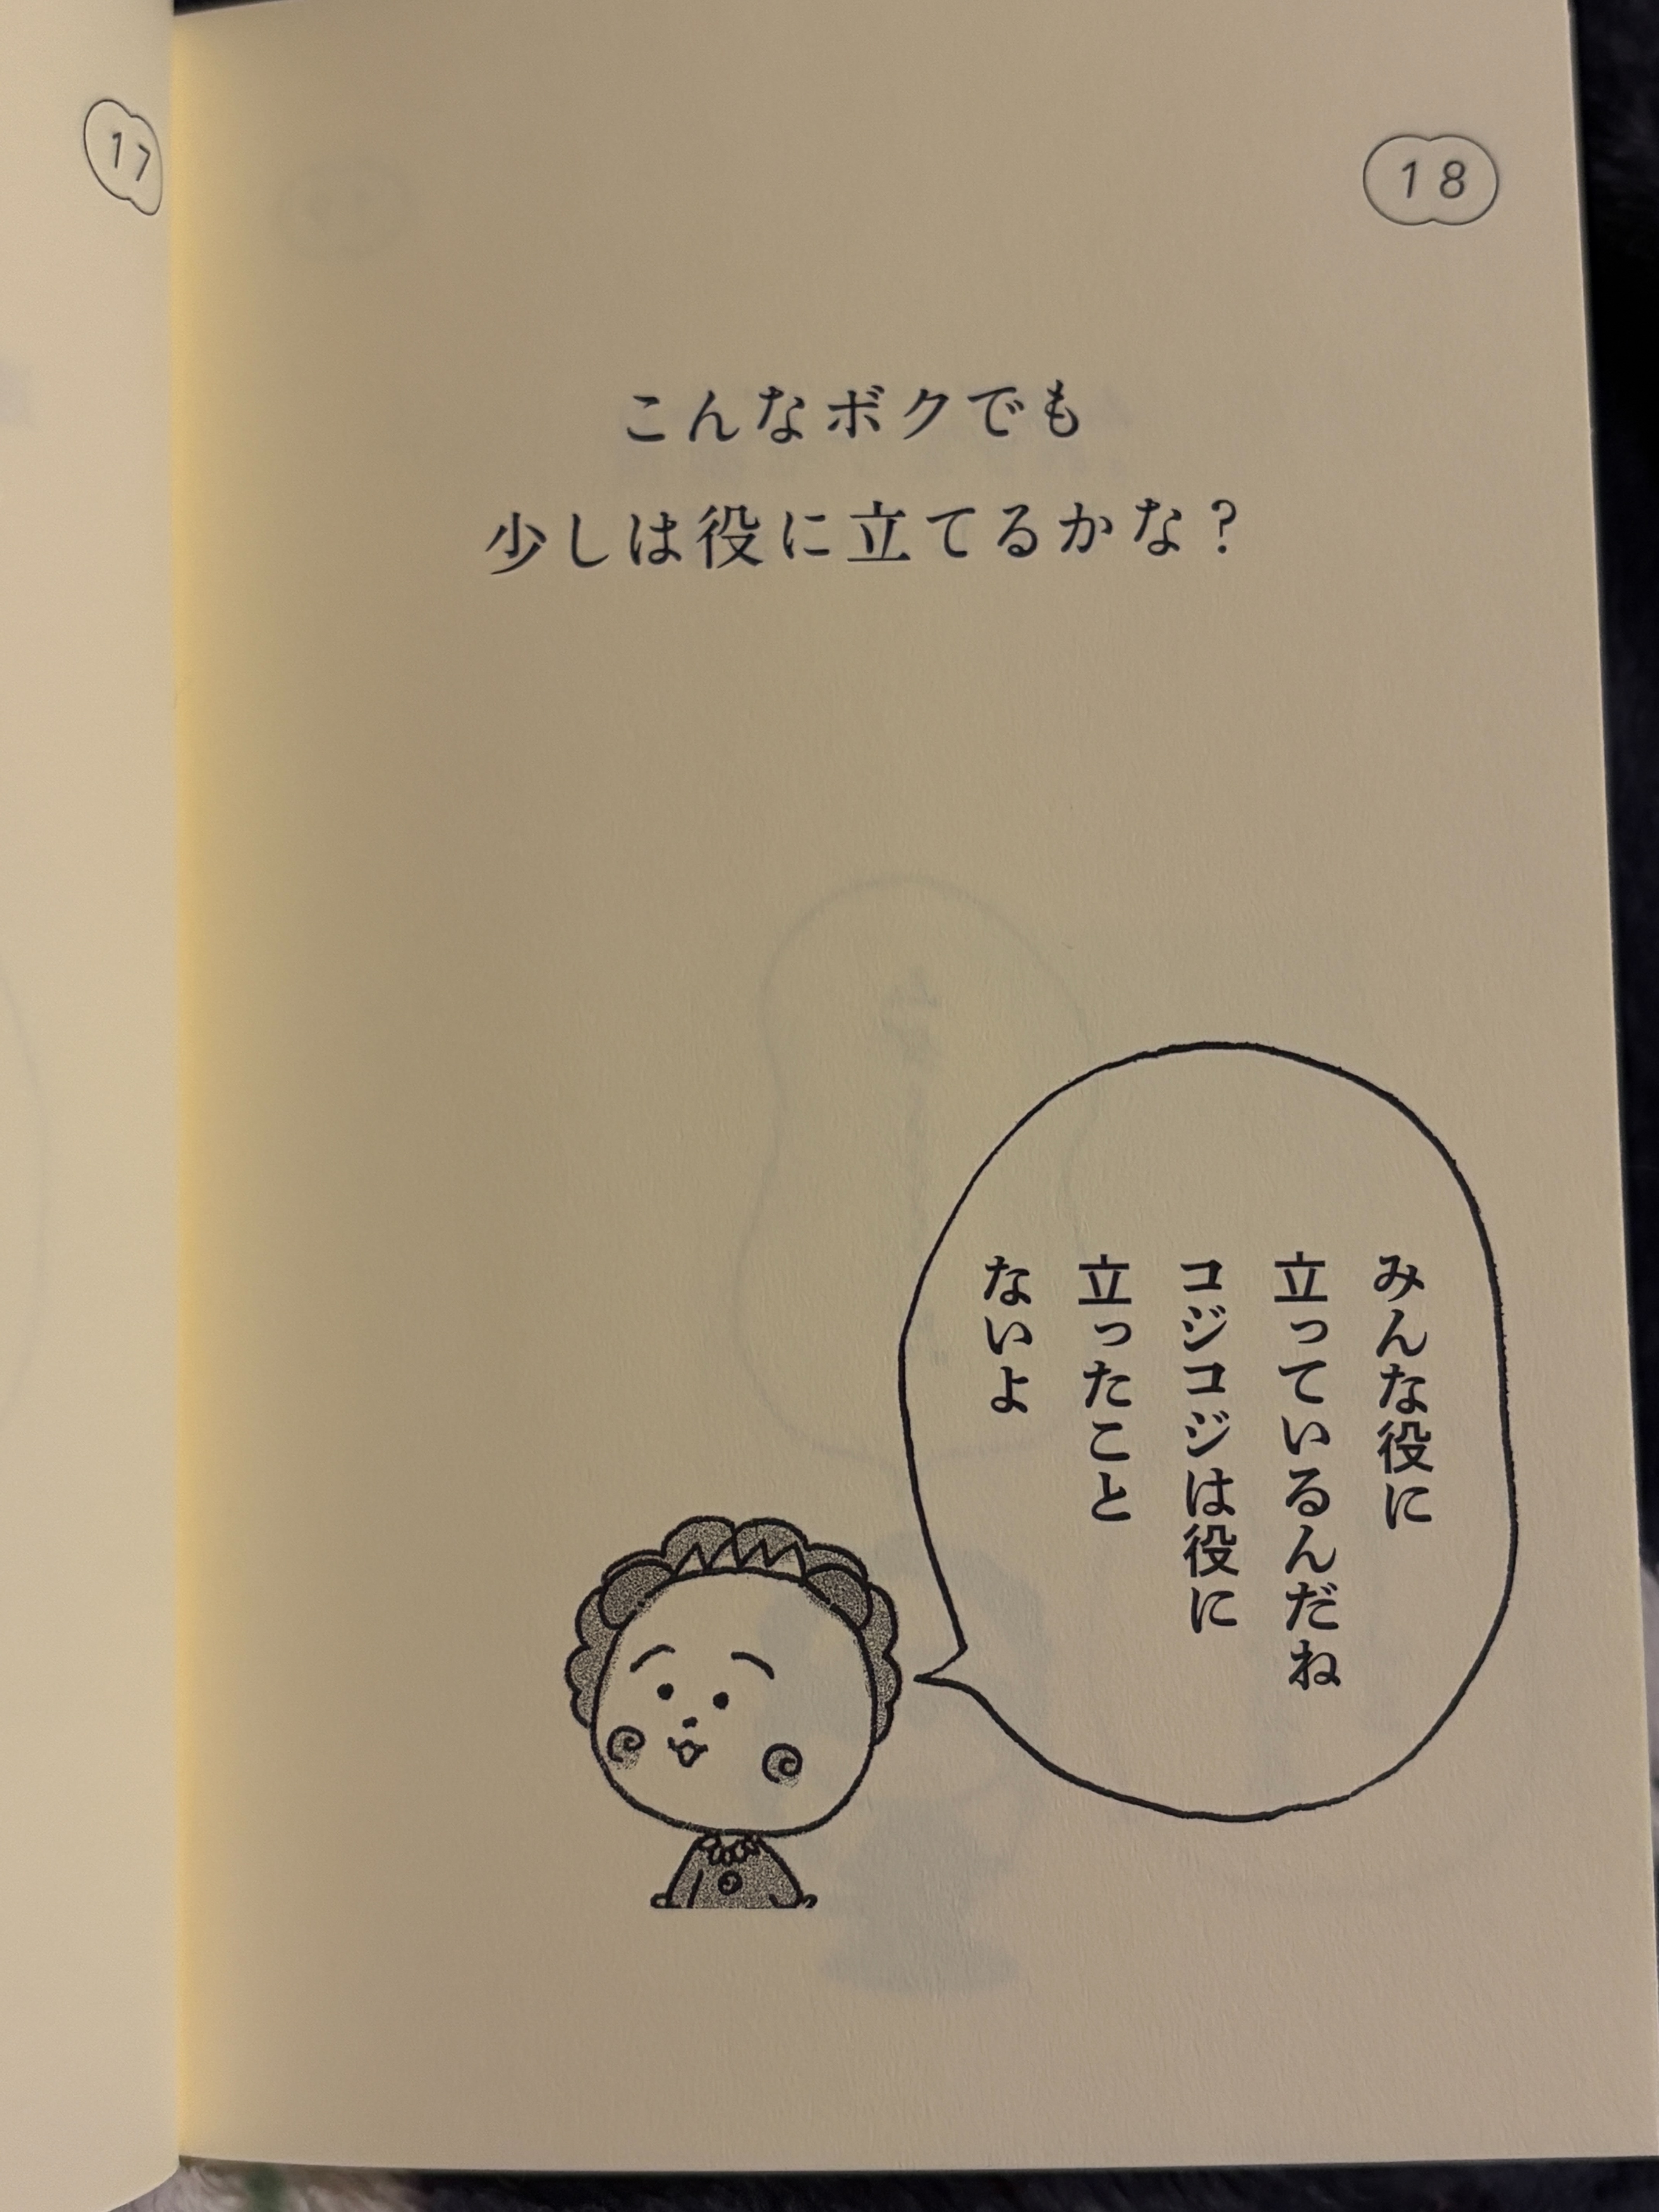 17
18
こんなボクでも
少しは役に立てるかな?
みんな役に
立っているんだね
コジコジは役に
立ったこと
ないよ